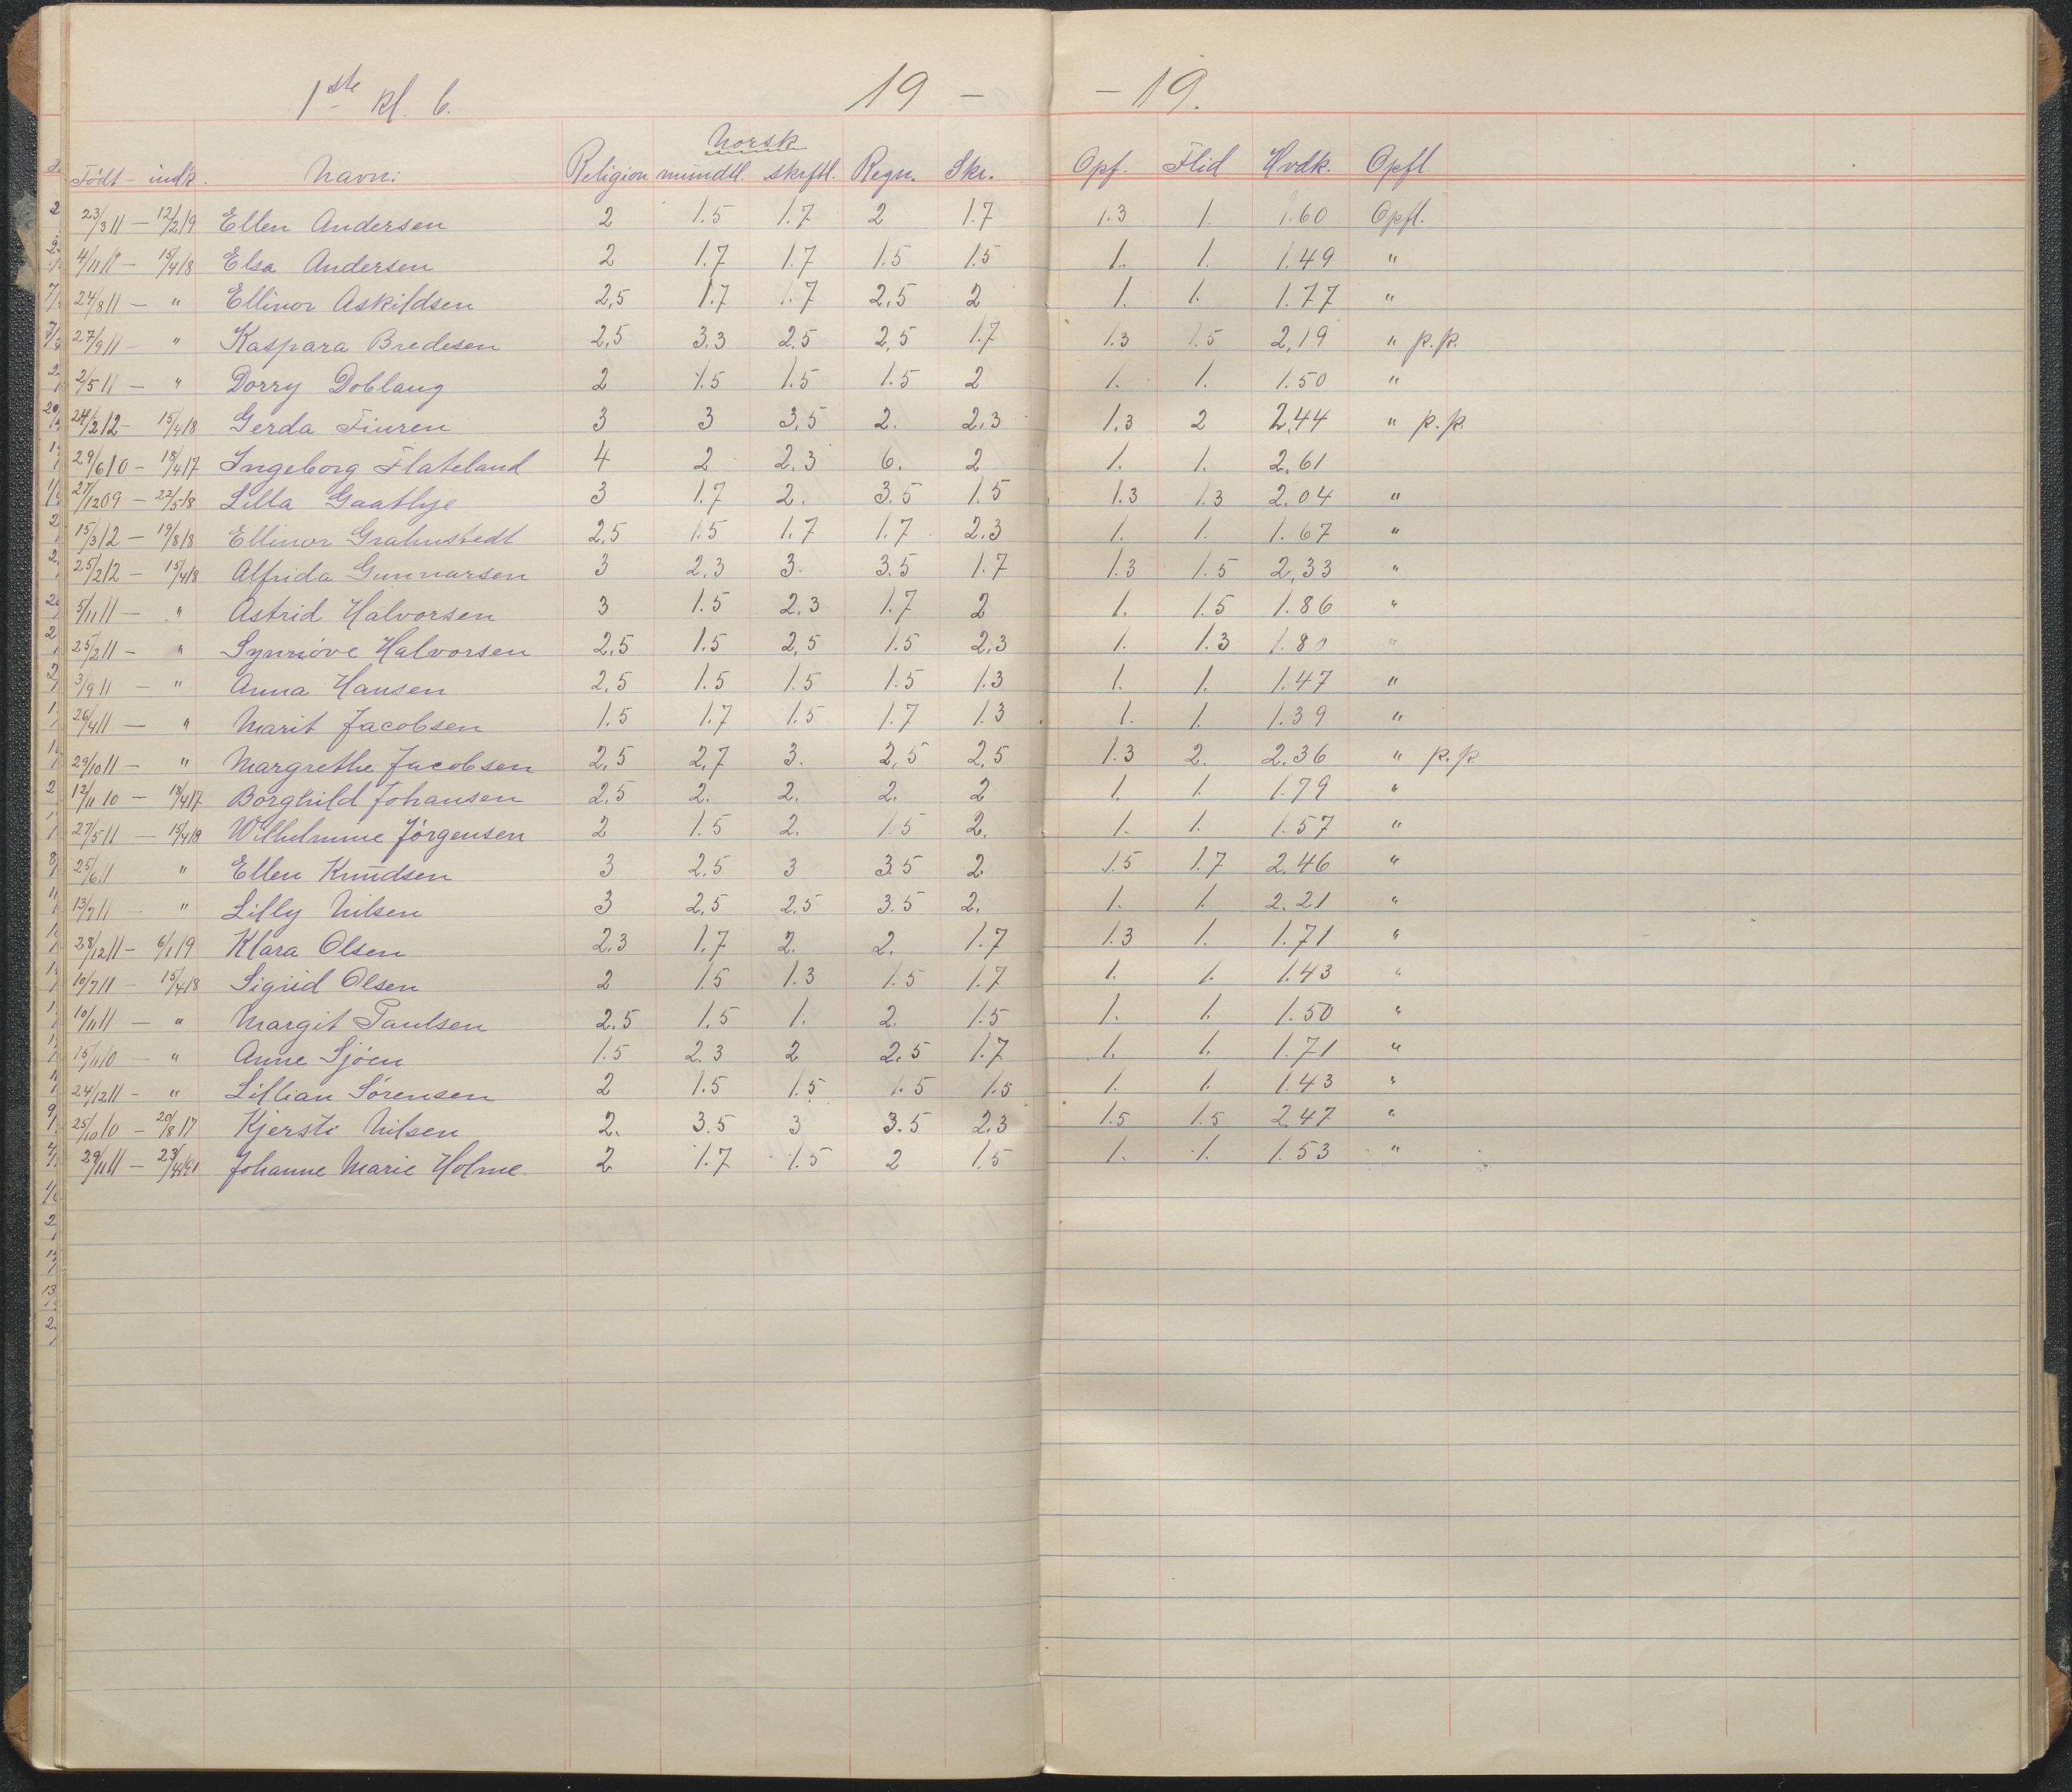 1ste kl. b. 19 - - 19.
Norsk
Født - indk. Navn: Religion mundtl. skrftl. Regn. Skr. Opf. Flid Hvdk. Opfl
23/3 11 - 12/2 19 Ellen Andersen 2 1.5 1.7 2 1.7 1.3 1. 1.60 Opfl.
4/11 11 - 15/4 18 Elsa Andersen 2 1.7 1.7 1.5 1.5 1. 1. 1.49 "
24/8 11 - " Ellinor Askildsen 2,5 1.7 1.7 2,5 2 1. 1. 1.77 "
27/9 11 - " Kaspara Bredesen 2,5 3.3 2.5 2,5 1.7 1.3 1.5 2,19 " p.p.
2/5 11 - " Dorry Doblaug 2 1.5 1.5 1.5 2 1. 1. 1.50 "
24/2 12 - 15/4 18 Gerda Fiuren 3 3 3,5 2. 2,3 1,3 2 2,44 " p.p.
29/6 10 - 18/4 17 Ingeborg Flateland 4 2 2.3 6. 2 1. 1. 2,61
27/12 09 - 22/5 18 Lilla Gaathje 3 1.7 2. 3.5 1.5 1.3 1.3 2.04 "
15/3 12 - 19/8 18 Ellinor Grahnstedt 2,5 1.5 1.7 1.7 2.3 1. 1. 1.67 "
25/2 12 - 15/4 18 Alfrida Gunnarsen 3 2,3 3. 3.5 1.7 1.3 1.5 2,33 "
5/11 11 - " Astrid Halvorsen 3 1.5 2,3 1.7 2 1. 1.5 1.86 "
25/2 11 - " Synnøve Halvorsen 2,5 1.5 2,5 1.5 2,3 1. 1.3 1.80 "
3/9 11 - " Anna Hansen 2,5 1.5 1.5 1.5 1.3 1. 1. 1.47 "
26/4 11 - " Marit Jacobsen 1.5 1.7 1.5 1.7 1.3 1. 1. 1.39 "
29/10 11 - " Margrethe Jacobsen 2,5 2,7 3. 2,5 2,5 1.3 2. 2.36 " p.p.
12/11 10 - 18/4 17 Borghild Johansen 2,5 2. 2. 2. 2 1. 1. 1.79 "
27/5 11 - 15/4 18 Wilhelmine Jørgensen 2 1.5 2. 1.5 2. 1. 1. 1.57 "
25/6 11 " Ellen Knudsen 3 2.5 3 3.5 2. 1.5 1.7 2.46 "
13/7 11 - " Lilly Nilsen 3 2,5 2.5 3.5 2. 1. 1. 2.21 "
28/12 11 - 6/1 19 Klara Olsen 2,3 1.7 2. 2. 1.7 1.3 1. 1.71 "
10/7 11 - 15/4 18 Sigrid Olsen 2 1.5 1.3 1.5 1.7 1. 1. 1.43 "
10/11 11 - " Margit Paulsen 2.5 1,5 1. 2. 1.5 1. 1. 1.50 "
15/1 10 - " Anne Sjøen 1.5 2.3 2 2,5 1.7 1. 1. 1.71 "
24/12 11 - " Lillian Sørensen 2 1.5 1.5 1.5 1.5 1. 1. 1.43 "
25/10 10 - 20/8 17 Kjersti Nilsen 2. 3.5 3 3.5 2,3 1.5 1.5 2.47 "
29/11 11 - Johanne Marie Holme 2 1.7 1.5 2 1.5 1. 1. 1.53 "